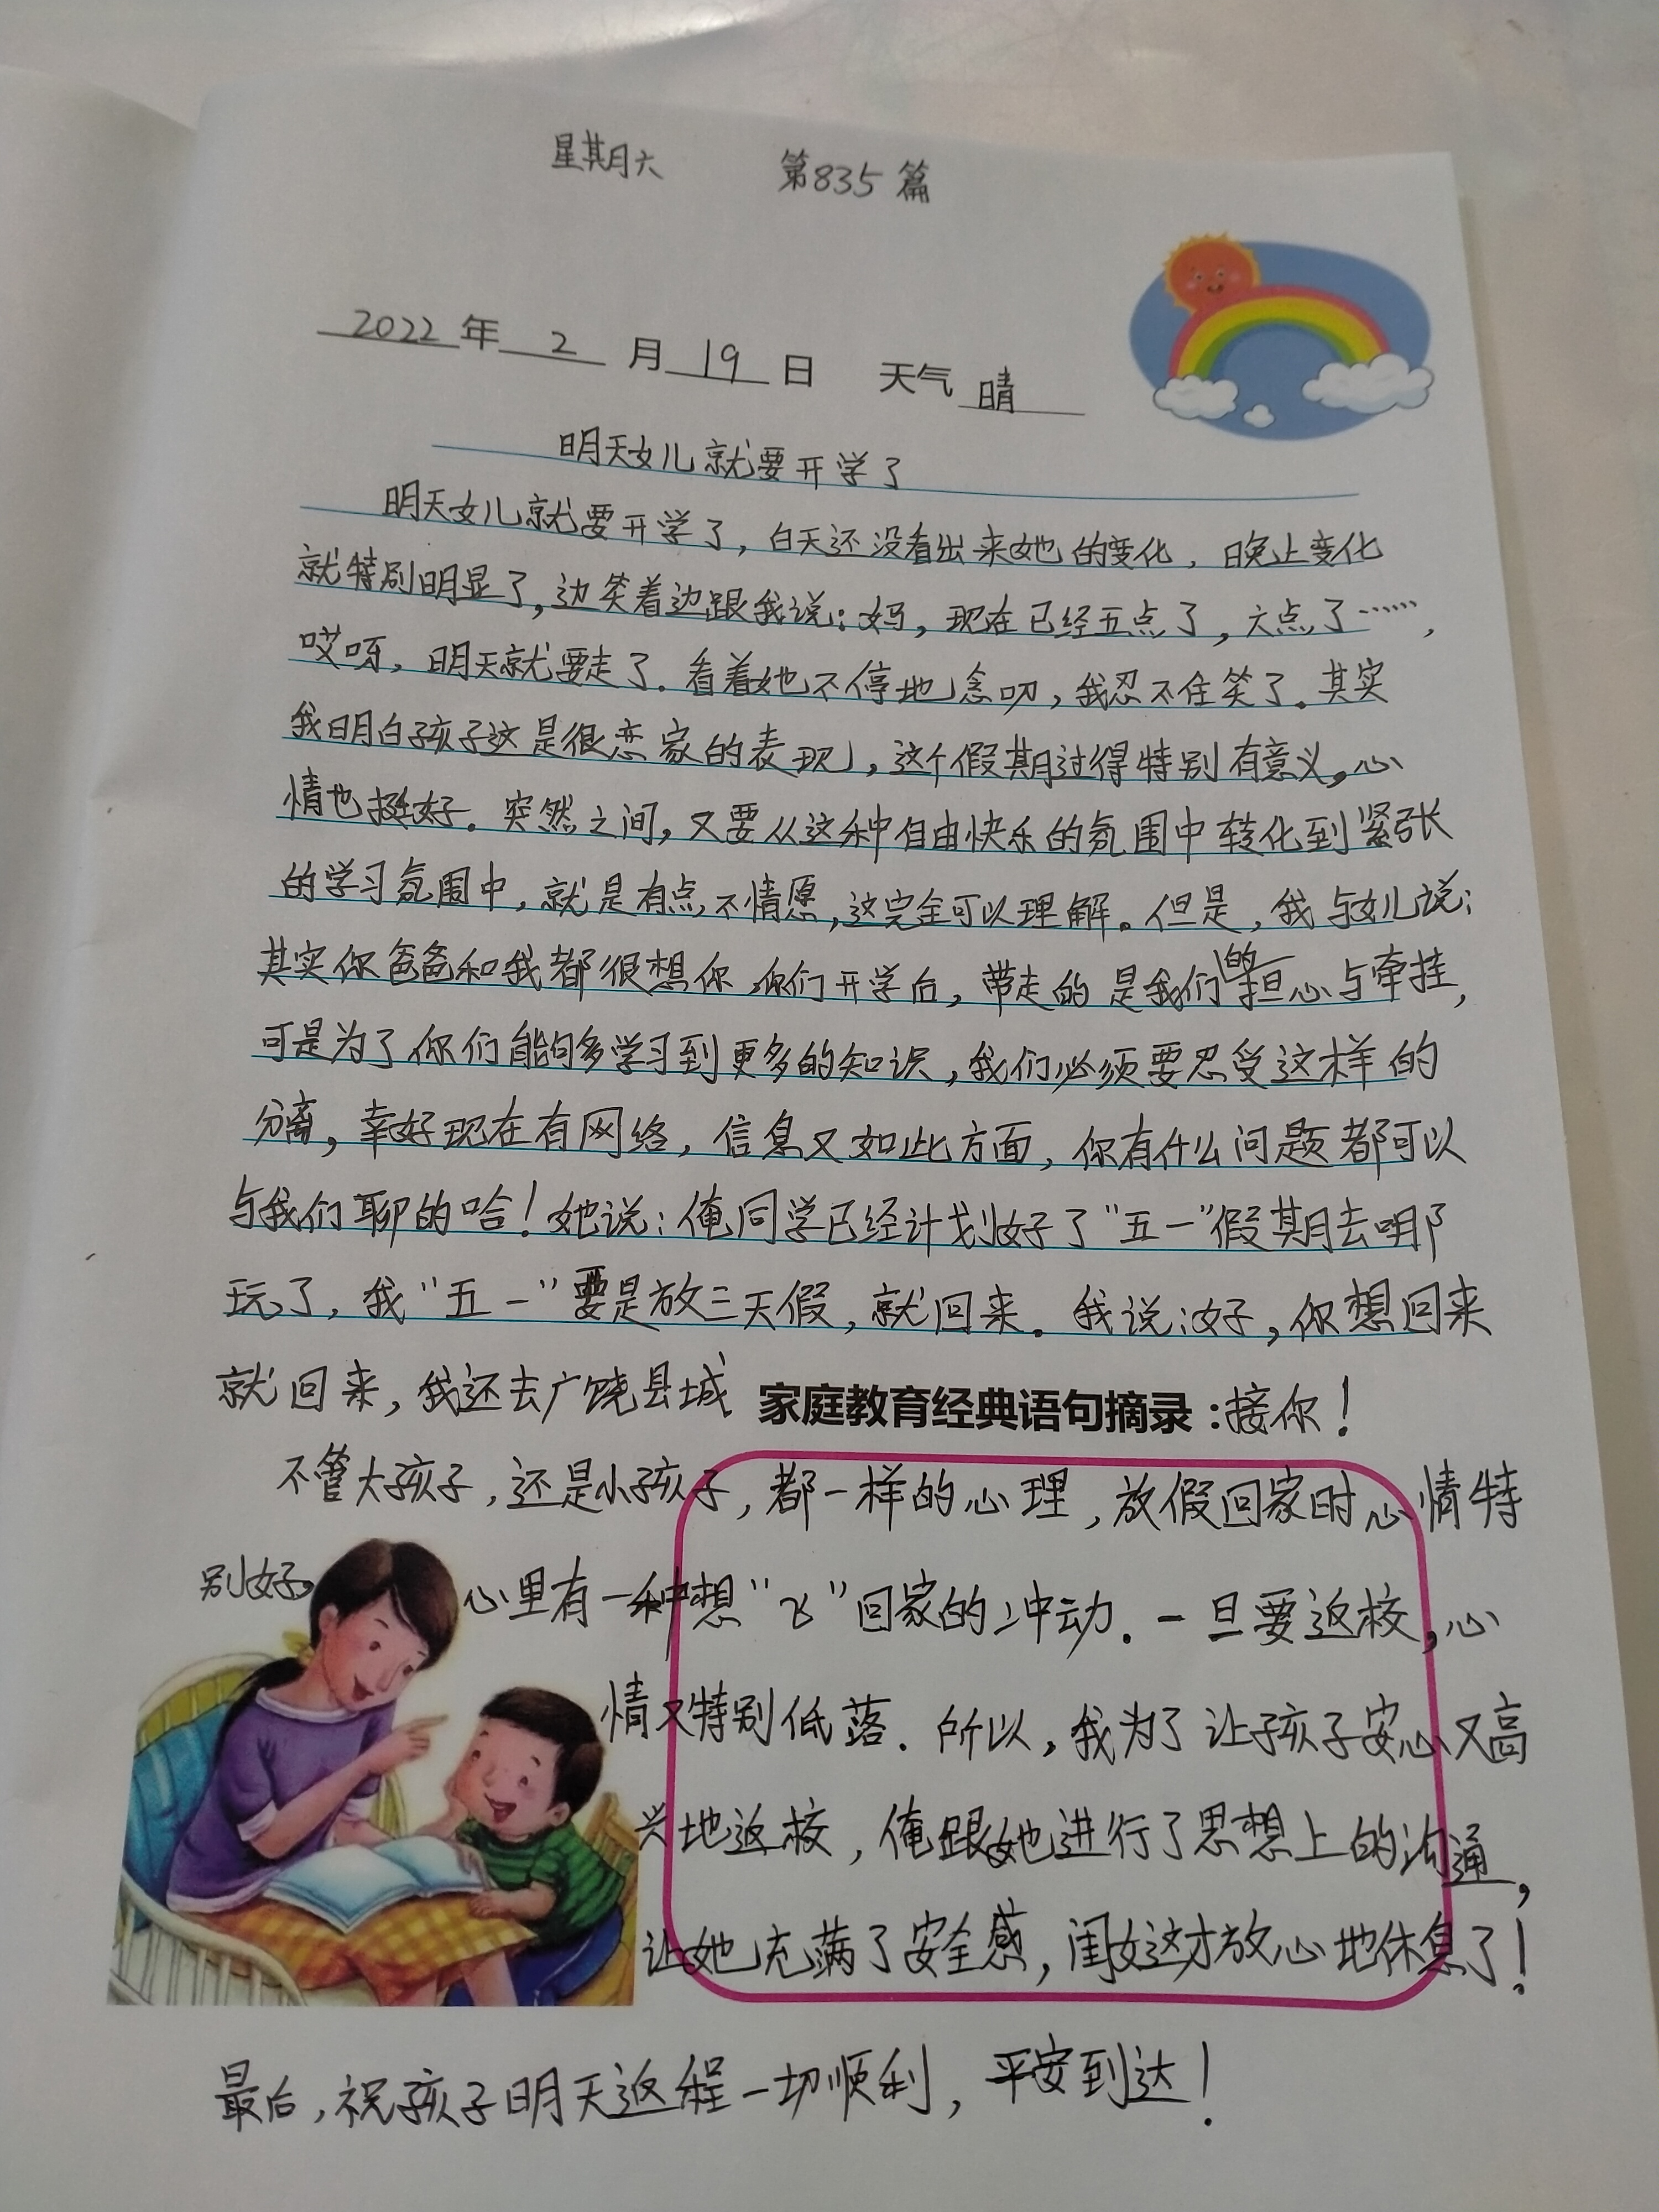 星期六 第835篇
2022年2月19日 天气晴
明天女儿就要开学了
明天女儿就要开学了，白天还没看出来她的变化，晚上变化
就特别明显了，边笑着边跟我说：妈，现在已经五点了，六点了……，
哎呀，明天就要走了．看着她不停地念叨，我忍不住笑了．其实
我明白孩子这是很恋家的表现，这个假期过得特别有意义，心
情也挺好．突然之间，又要从这种自由快乐的氛围中转化到紧张
的学习氛围中，就是有点不情愿，这完全可以理解。但是，我与女儿说：
其实你爸爸和我都很想你，你们开学后，带走的是我们的担心与牵挂，
可是为了你们能够多学习到更多的知识，我们必须要忍受这样的
分离，幸好现在有网络，信息又如此方面，你有什么问题都可以
与我们聊的哈！她说：俺同学已经计划好了“五一”假期去哪
玩了，我“五一”要是放三天假，就回来．我说：好，你想回来
就回来，我还去广饶县城 家庭教育经典语句摘录：接你！
不管大孩子，还是小孩子，都一样的心理，放假回家时心情特
别好，心里有一种想“飞”回家的冲动．一旦要返校，心
情又特别低落．所以，我为了让孩子安心又高
兴地返校，俺跟她进行了思想上的沟通，
让她充满了安全感，闺女这才放心地休息了！
最后，祝孩子明天返程一切顺利，平安到达！